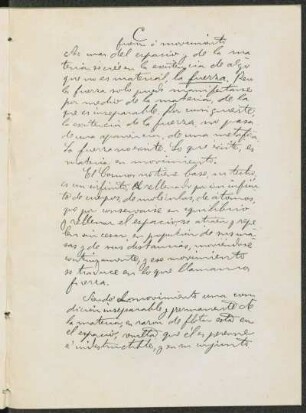 C
fuerza é movimiento
Ademas del espacio y de la ma-
teria, se cree en la existencia de algo
que no es material, la fuerza. Pero
la fuerza solo puede manifestarse
por medio de la materia, de la
que es inseparable; por consiguiente,
la existencia de la fuerza, no pasa
de una apariencia, de una metáfora.
La fuerza no existe. Lo que existe, es
materia en movimiento.
El Cosmos no tiene base, ni techo,
es un infinito, rellenado por un infini-
to de cuerpos, de moléculas, de átomos,
que por conservarse en equilibrio
y rellenar el espacio, se atraen y repe-
len sin cesar, en proporción de sus ma-
sas y de sus distancias, moviendose
continuamente, y ese movimiento
se traduce en lo que llamamos
fuerza.
Siendo el movimiento una con-
dicion inseparable y permanente de
la materia, en razon de flotar esta en
el espacio, resulta que él es perenne
é indestructible, y en su infinito